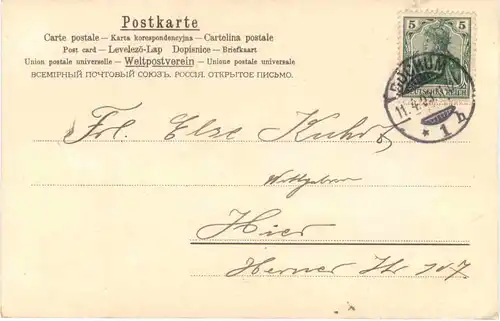 Postkarte
Carte postale – Karta korespondencyjna – Cartolina postale
Post card – Levelező-Lap Dopisnice – Briefkaart
Union postale universelle – Weltpostverein – Unione postale universale
ВСЕМІРНЫЙ ПОЧТОВЫЙ СОЮЗЪ. РОССІЯ. ОТКРЫТОЕ ПИСЬМО.
5 5
DEUTSCHES REICH
BOCHUM
11.4.03
* 1 h
Frl. Else
Wohlgeboren
Hier
Herner Str 107